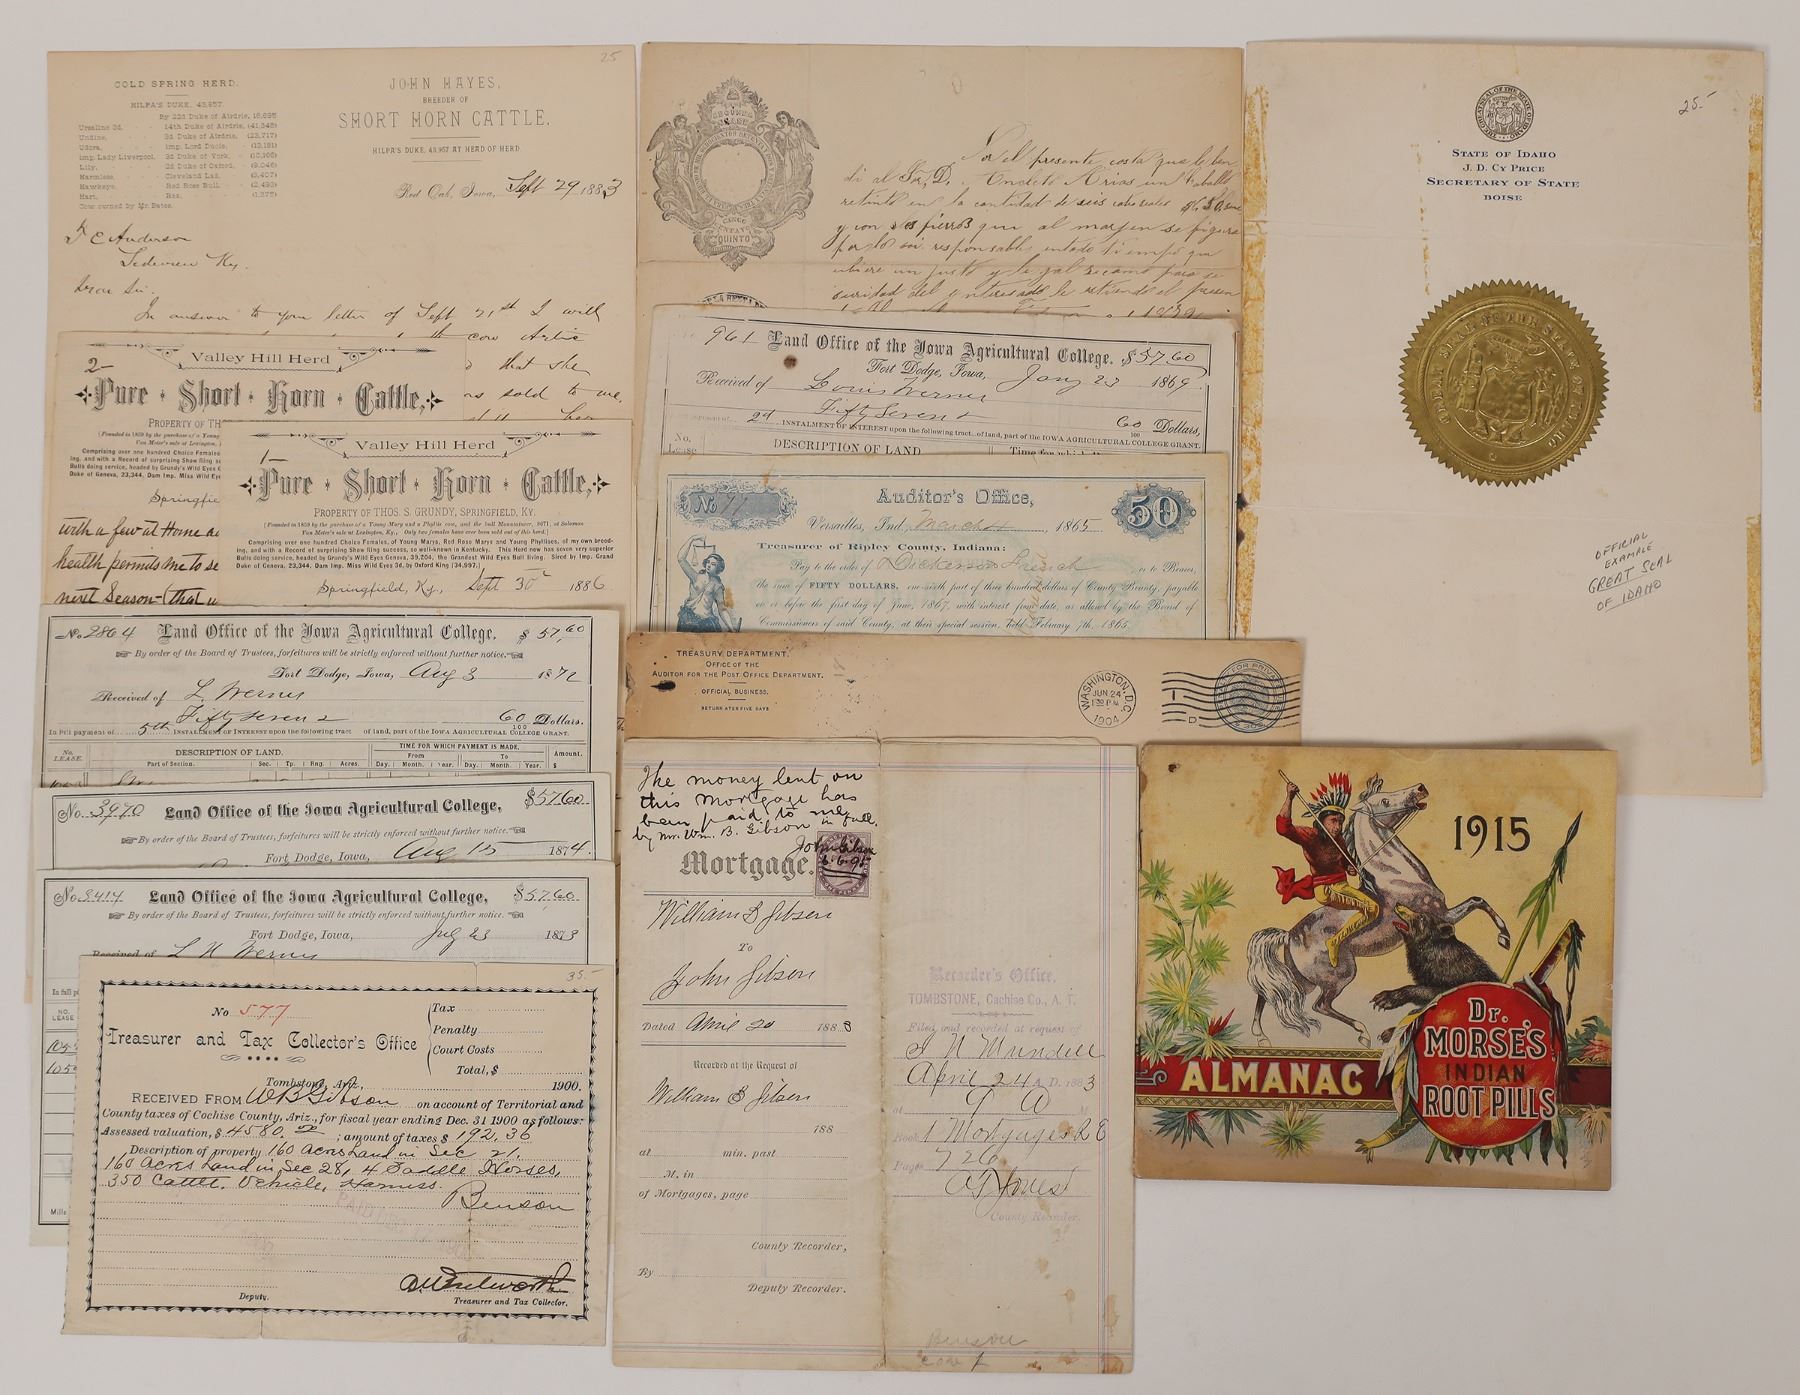 COLD SPRING HERD.
HILPA'S DUKE, 43,957.
By 22d Duke of Airdrie, 16,695
Ursaline 2d. 14th Duke of Airdrie, (41,348)
Undine. 3d Duke of Airdrie, (23,717)
Udora. imp. Lord Ducie, (13,181)
imp. Lady Liverpool. 3d Duke of York, (10,166)
Lily. 2d Duke of Oxford, (9,046)
Harmless. Cleveland Lad, (3,407)
Hawkeye. Red Rose Bull, (2,493)
Hart. Rex, (1,375)
Cow owned by Mr. Bates.
25
JOHN HAYES,
BREEDER OF
SHORT HORN CATTLE.
HILPA'S DUKE, 43,957 AT HEAD OF HERD.
Red Oak, Iowa, Sept 29 1883
Anderson
Ky.
Dear Sir.
In answer to your letter of Sept 21st I will
cow
that she
sold to me,
2-
Valley Hill Herd
Pure Short Horn Cattle,
PROPERTY OF TH
[Founded in 1859 by the purchase of a Young
Van Meter's sale at Lexington,
Comprising over one hundred Choice Females
ing, and with a Record of Surprising Show
Bulls doing service, headed by Grundy's Wild Eyes
Duke of Geneva, 23,344, Dam Imp. Miss Wild Eye
Springfie
with a few at Home
health permits me to se
next Season (that
1-
Valley Hill Herd
Pure Short Horn Cattle,
PROPERTY OF THOS. S. GRUNDY, SPRINGFIELD, KY.
[Founded in 1859 by the purchase of a Young Mary and a Phyllis cow, and the bull Mountaineer, 8071, at Solomon
Van Meter's sale at Lexington, Ky., Only two females have ever been sold out of this herd.]
Comprising over one hundred Females, of Young Marys, Red Rose Marys and Young Phyllises, of my own breed-
ing, and with a Record of surprising Show Ring success, so well-known in Kentucky. This Herd now has seven very superior
Bulls doing service, headed by Grundy's Wild Eyes Geneva, 39,204, the Grandest Wild Eyes Bull living. Sired by Imp. Grand
Duke of Geneva, 23,344, Dam Imp. Miss Wild Eyes 3d, by Oxford King (34,997.)
Springfield, Ky., Sept 30 1886
No. 2864 Land Office of the Iowa Agricultural College. $57.60
By order of the Board of Trustees, forfeitures will be strictly enforced without further notice.
Fort Dodge, Iowa, Aug 3 1872
Received of L. Werner
Fifty Seven & 60/100 Dollars.
In full payment of 5th INSTALMENT of INTEREST upon the following tract of land, part of the IOWA AGRICULTURAL COLLEGE GRANT.
No. LEASE. DESCRIPTION OF LAND. TIME FOR WHICH PAYMENT IS MADE. Amount.
Part of Section. Sec. Tp. Rng. Acres. From Day. Month. Year. To Day. Month. Year. $
No. 3970 Land Office of the Iowa Agricultural College, $57.60
By order of the Board of Trustees, forfeitures will be strictly enforced without further notice.
Fort Dodge, Iowa, Aug 15 1874.
No. 3414 Land Office of the Iowa Agricultural College, $57.60
By order of the Board of Trustees, forfeitures will be strictly enforced without further notice.
Fort Dodge, Iowa, July 23 1873
Received of L Werner
In full p
NO. LEASE
105
105
Mills
35-
No 577
Treasurer and Tax Collector's Office
Tax
Penalty
Court Costs
Total, $
Tombstone, Ariz., 1900.
RECEIVED FROM W B Gibson on account of Territorial and
County taxes of Cochise County, Ariz., for fiscal year ending Dec. 31 1900 as follows:
Assessed valuation, $ 4580.00; amount of taxes $ 192.36
Description of property 160 Acres Land in Sec 21,
160 Acres Land in Sec 28, 4 Saddle Horses,
350 Cattle, Vehicle, Harness.
Benson
PAID
Deputy.
Treasurer and Tax Collector.
SEGUNDA CLASE
CINCO CENTAVO
QUINTO
Por el presente costa que le ben
di al Sr. D. Arias un caballo
retinto en la cantidad de
y con fierros que al margen se figura
por lo soi responsable
961 Land Office of the Iowa Agricultural College. $57.60
Fort Dodge, Iowa, Jany 23 1869
Received of Louis Werner
Fifty Seven & 60/100 Dollars,
2d INSTALMENT of INTEREST upon the following tract of land, part of the IOWA AGRICULTURAL COLLEGE GRANT.
No. Lease DESCRIPTION OF LAND Time for which
No 71
Auditor's Office,
50
Versailles, Ind. March 4, 1865
Treasurer of Ripley County, Indiana:
Pay to the order of Dickerson French or to Bearer,
the sum of FIFTY DOLLARS, one-sixth part of three hundred dollars of County Bounty, payable
on or before the first day of June, 1867, with interest from date, as allowed by the Board of
Commissioners of said County, at their special session, held February 7th, 1865.
TREASURY DEPARTMENT.
OFFICE OF THE
AUDITOR FOR THE POST OFFICE DEPARTMENT.
OFFICIAL BUSINESS.
RETURN AFTER FIVE DAYS
WASHINGTON, D.C.
JUN 24
1 30 P.M.
1904
1
D
PENALTY FOR PRIVATE
$300.
The money lent on
this Mortgage has
been paid to me in full.
by Mr. Wm. B. Gibson
John Gibson
6.6.95
Mortgage.
William B Gibson
To
John Gibson
Dated April 20 1883
Recorded at the Request of
William B Gibson
188
at min. past
M, in
of Mortgages, page
County Recorder,
By
Deputy Recorder.
Recorder's Office,
TOMBSTONE, Cachise Co., A. T.
Filed and recorded at request of
Mundell
April 24 A.D. 1883
at 9 A M
Book 1 Mortgages R E
Pages 726
Jones
County Recorder.
Benson
THE GREAT SEAL OF THE STATE OF IDAHO
STATE OF IDAHO
J. D. CY PRICE
SECRETARY OF STATE
BOISE
25.-
GREAT SEAL OF THE STATE OF IDAHO
OFFICIAL
EXAMPLE
GREAT SEAL
OF IDAHO
1915
ALMANAC
Dr.
MORSE'S
INDIAN
ROOT PILLS